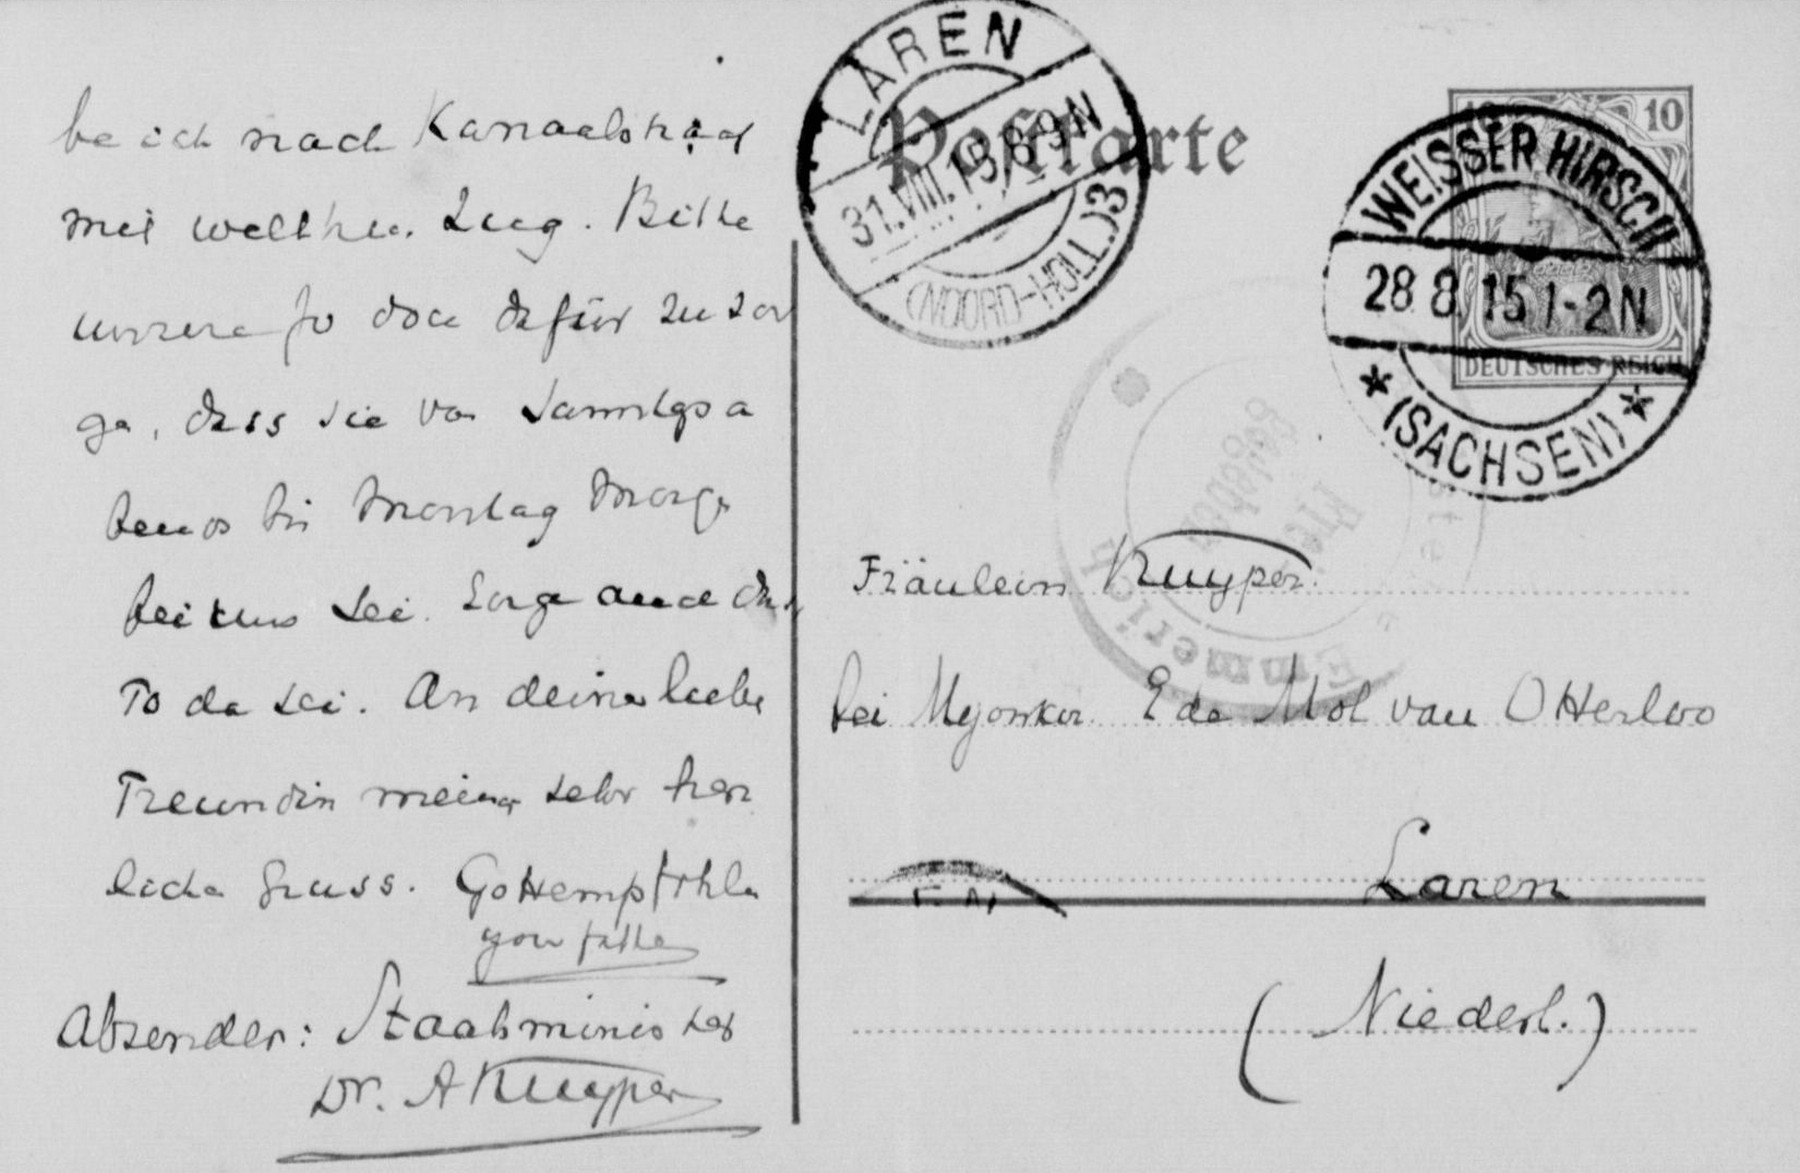 be ich nach Kanaalstraat
mit welchem Zug. Bitte
unsere Jo doch dafür zu sor
ge, dass sie von Samstgsa
bends bis Montag Morge
bei uns sei. Sorge auch das
To da sei. An deine liebe
Freundin meiner sehr herz
liche Gruss. Gottempfohle
your father
Absender: Staatsminister
Dr. A Kuyper
LAREN
31.VIII.15 8-9N
(NOORD-HOLL.)3
Postkarte
10
DEUTSCHES REICH
WEISSER HIRSCH
28.8.15 1-2N
* (SACHSEN) *
Freigegeben
Emmerich
Fräulein Kuyper.
bei Myonker E de Mol van Otterloo
Laren
(Niederl.)